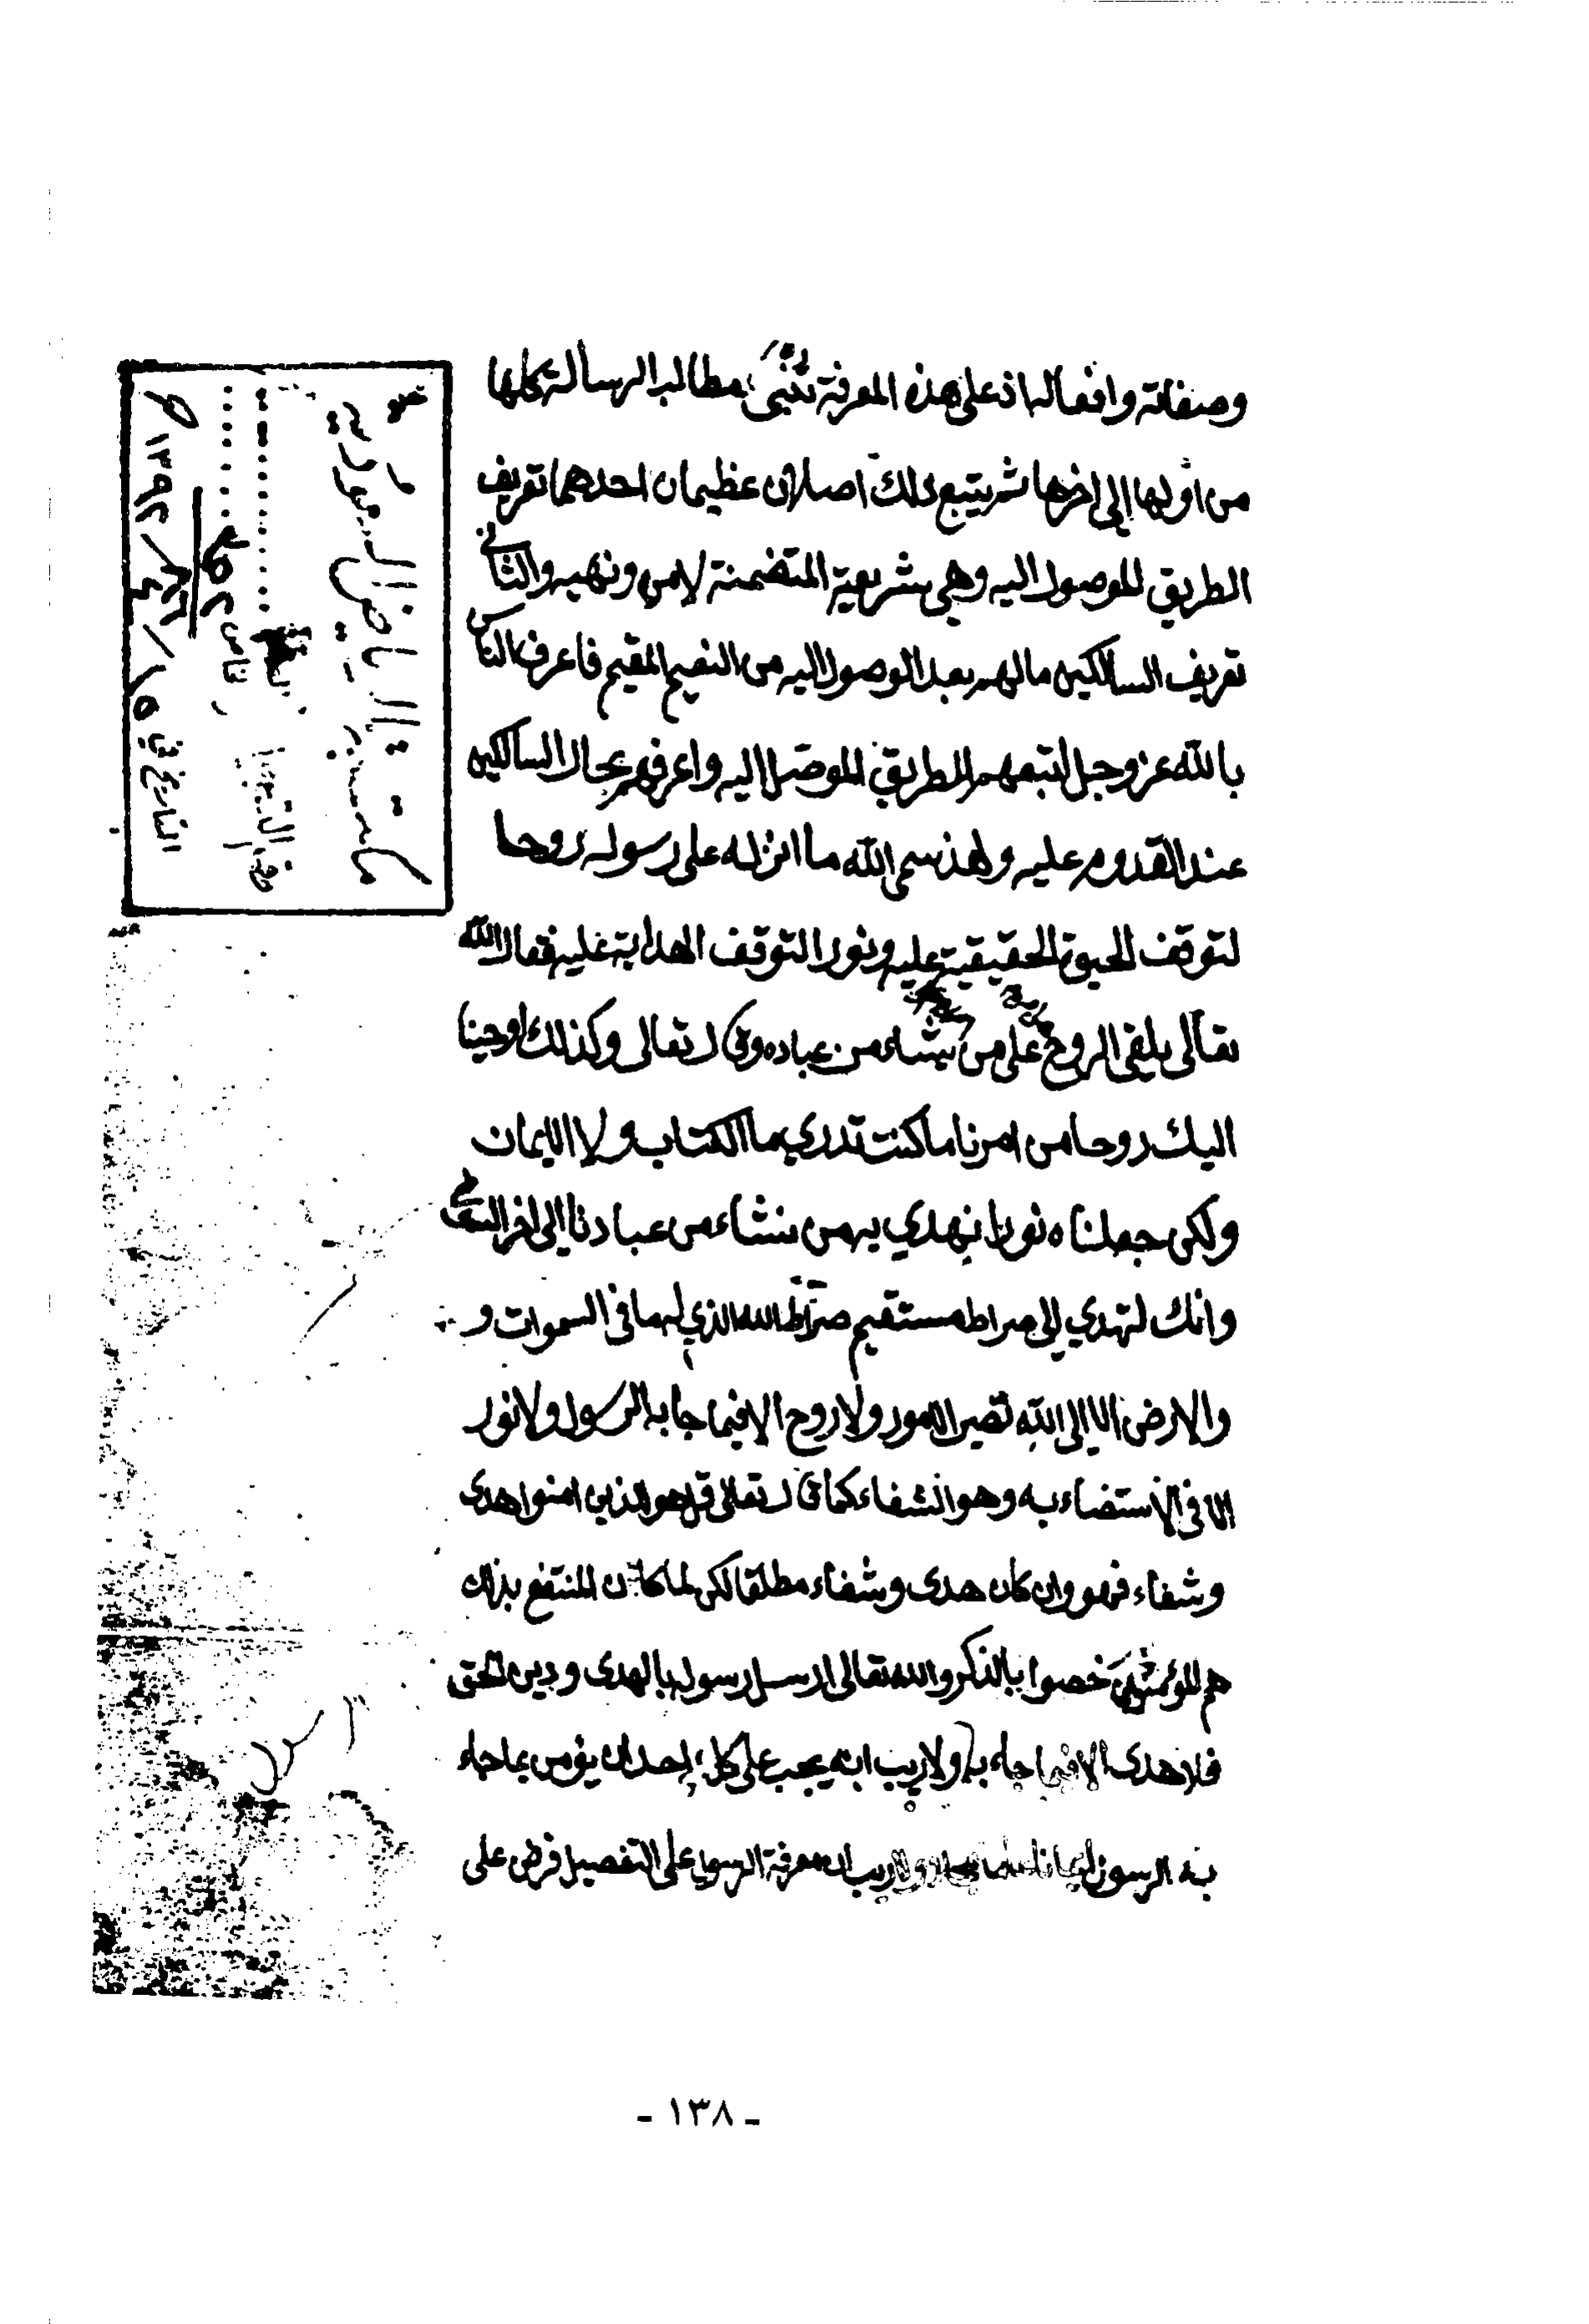 وصفاته وافعاله اذ على هذه المعرفة تنبني مطالب الرسالة كلها
من أولها إلى اخرها ثم يتبع ذلك اصلان عظيمان احدهما تعريف
الطريق الموصول اليه وهي شريعة المتضمنة لامره ونهيه والثاني
تعريف السالكين مالهم بعد الوصول اليه من النعيم المقيم فاعرف الناس
بالله عز وجل اتبعهم للطريق الموصل اليه واعرفهم بحال السالكين
عند القدوم عليه ولهذ سمى الله ما انزله على رسوله روحا
لتوقف الحيوة الحقيقية عليه ونورا لتوقف الهداية عليه فقال الله
تعالى يلقى الروح على من يشاء من عباده وقال تعالى وكذلك اوحينا
اليك روحا من امرنا ما كنت تدري ما الكتاب ولا الايمان
ولكن جعلناه نورا نهدي به من نشاء من عبادنا إلى اخر
وانك لتهدي إلى صراط مستقيم صراط الله الذي له ما في السموات و
والارض الا إلى الله تصير الامور ولا روح الا فيما جا به الرسول ولا نور
الا في الاستضاء به وهو الشفاء كما قال تعالى قل هو للذين امنوا هدى
وشفاء فهو وان كان هدى وشفاء مطلقا لكن لما كان المنتفع بذلك
هم المؤمنين خصوا بالذكر والله تعالى ارسل رسوله بالهدى ودين الحق
فلا هدى الا فيما جاء به ولا ريب انه يجب على كل احد ان يؤمن بما جاء
به الرسول ايمانا عاما مجملا ولا ريب ان معرفة الرسول على التفصيل فرض على
مكتبة الرياض السعودية
رقم التسجيل
التاريخ في ١٥/ ١٣٩٢
- ١٣٨ -